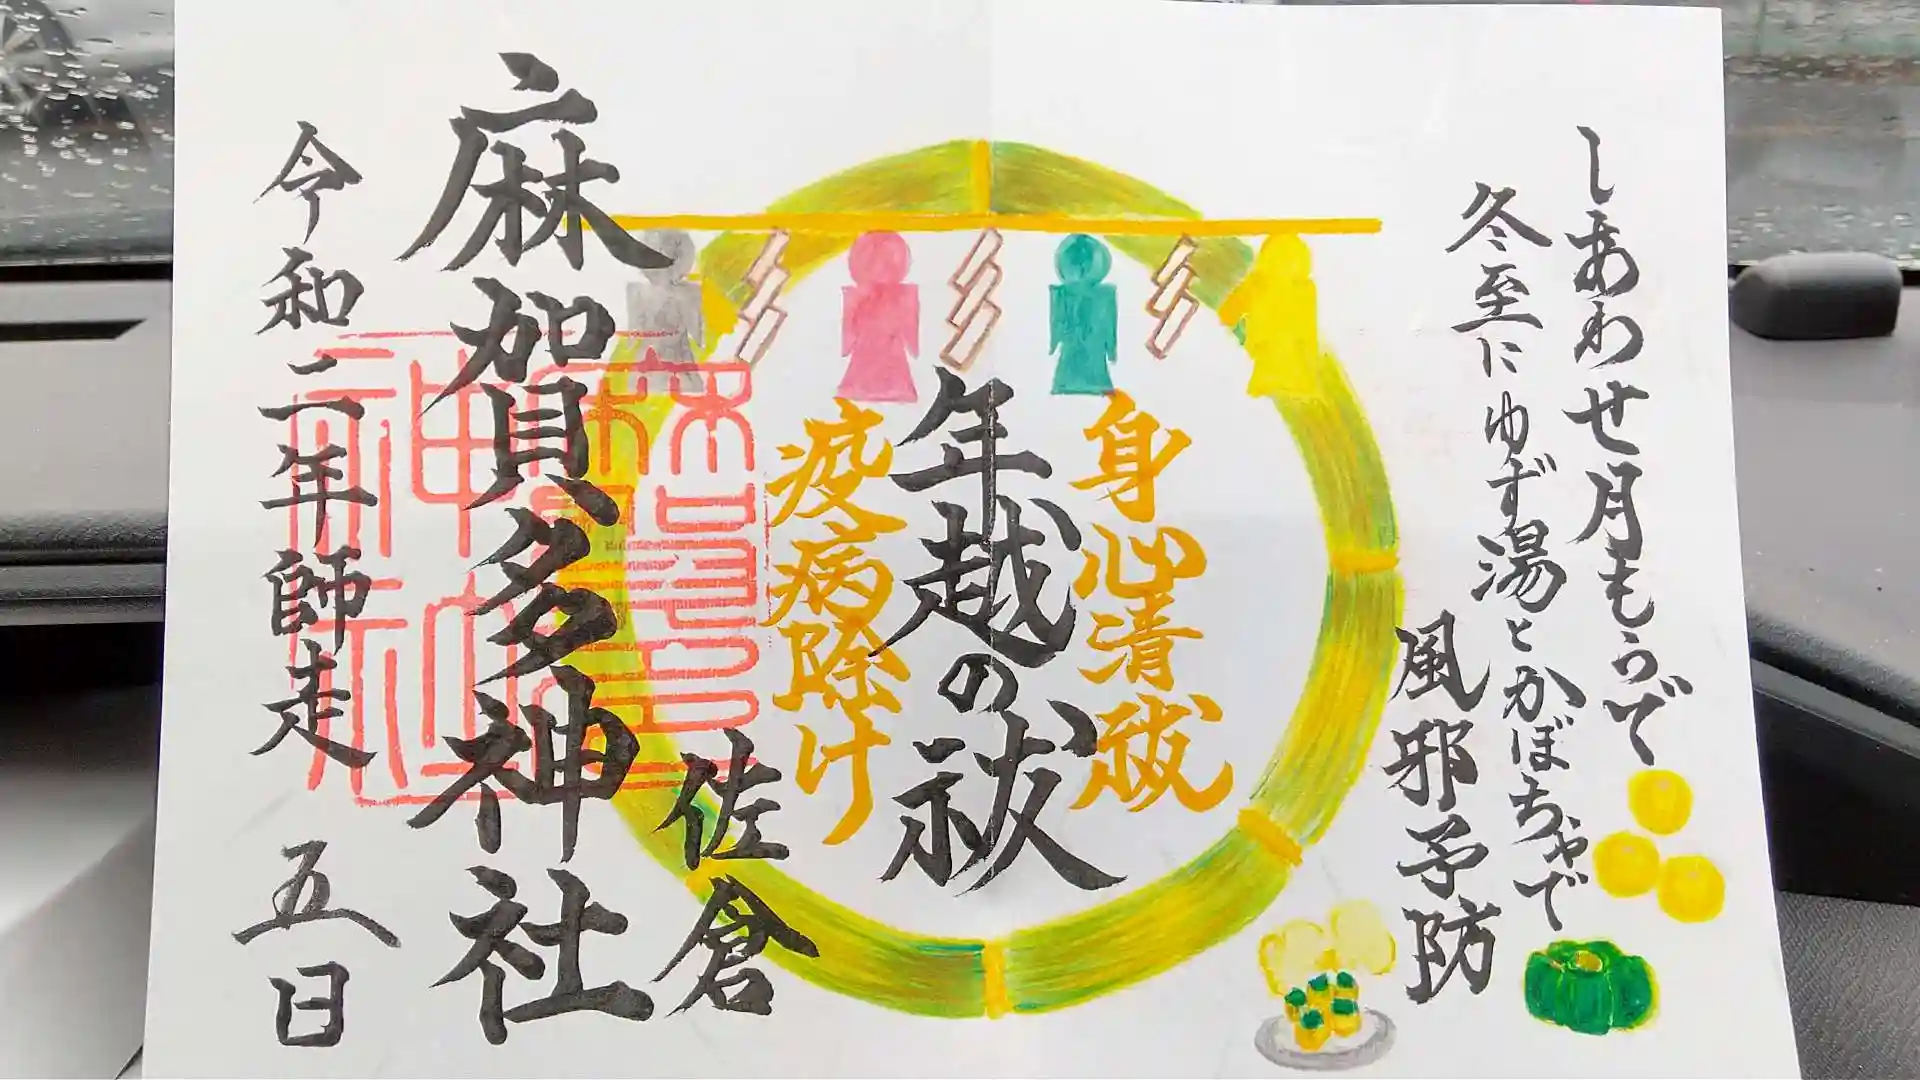 しあわせ月もうで
冬至にゆず湯とかぼちゃで
風邪予防
身心清祓
年越の祓
疫病除け
佐倉
麻賀多神社
令和二年師走 五日
麻賀多
神社